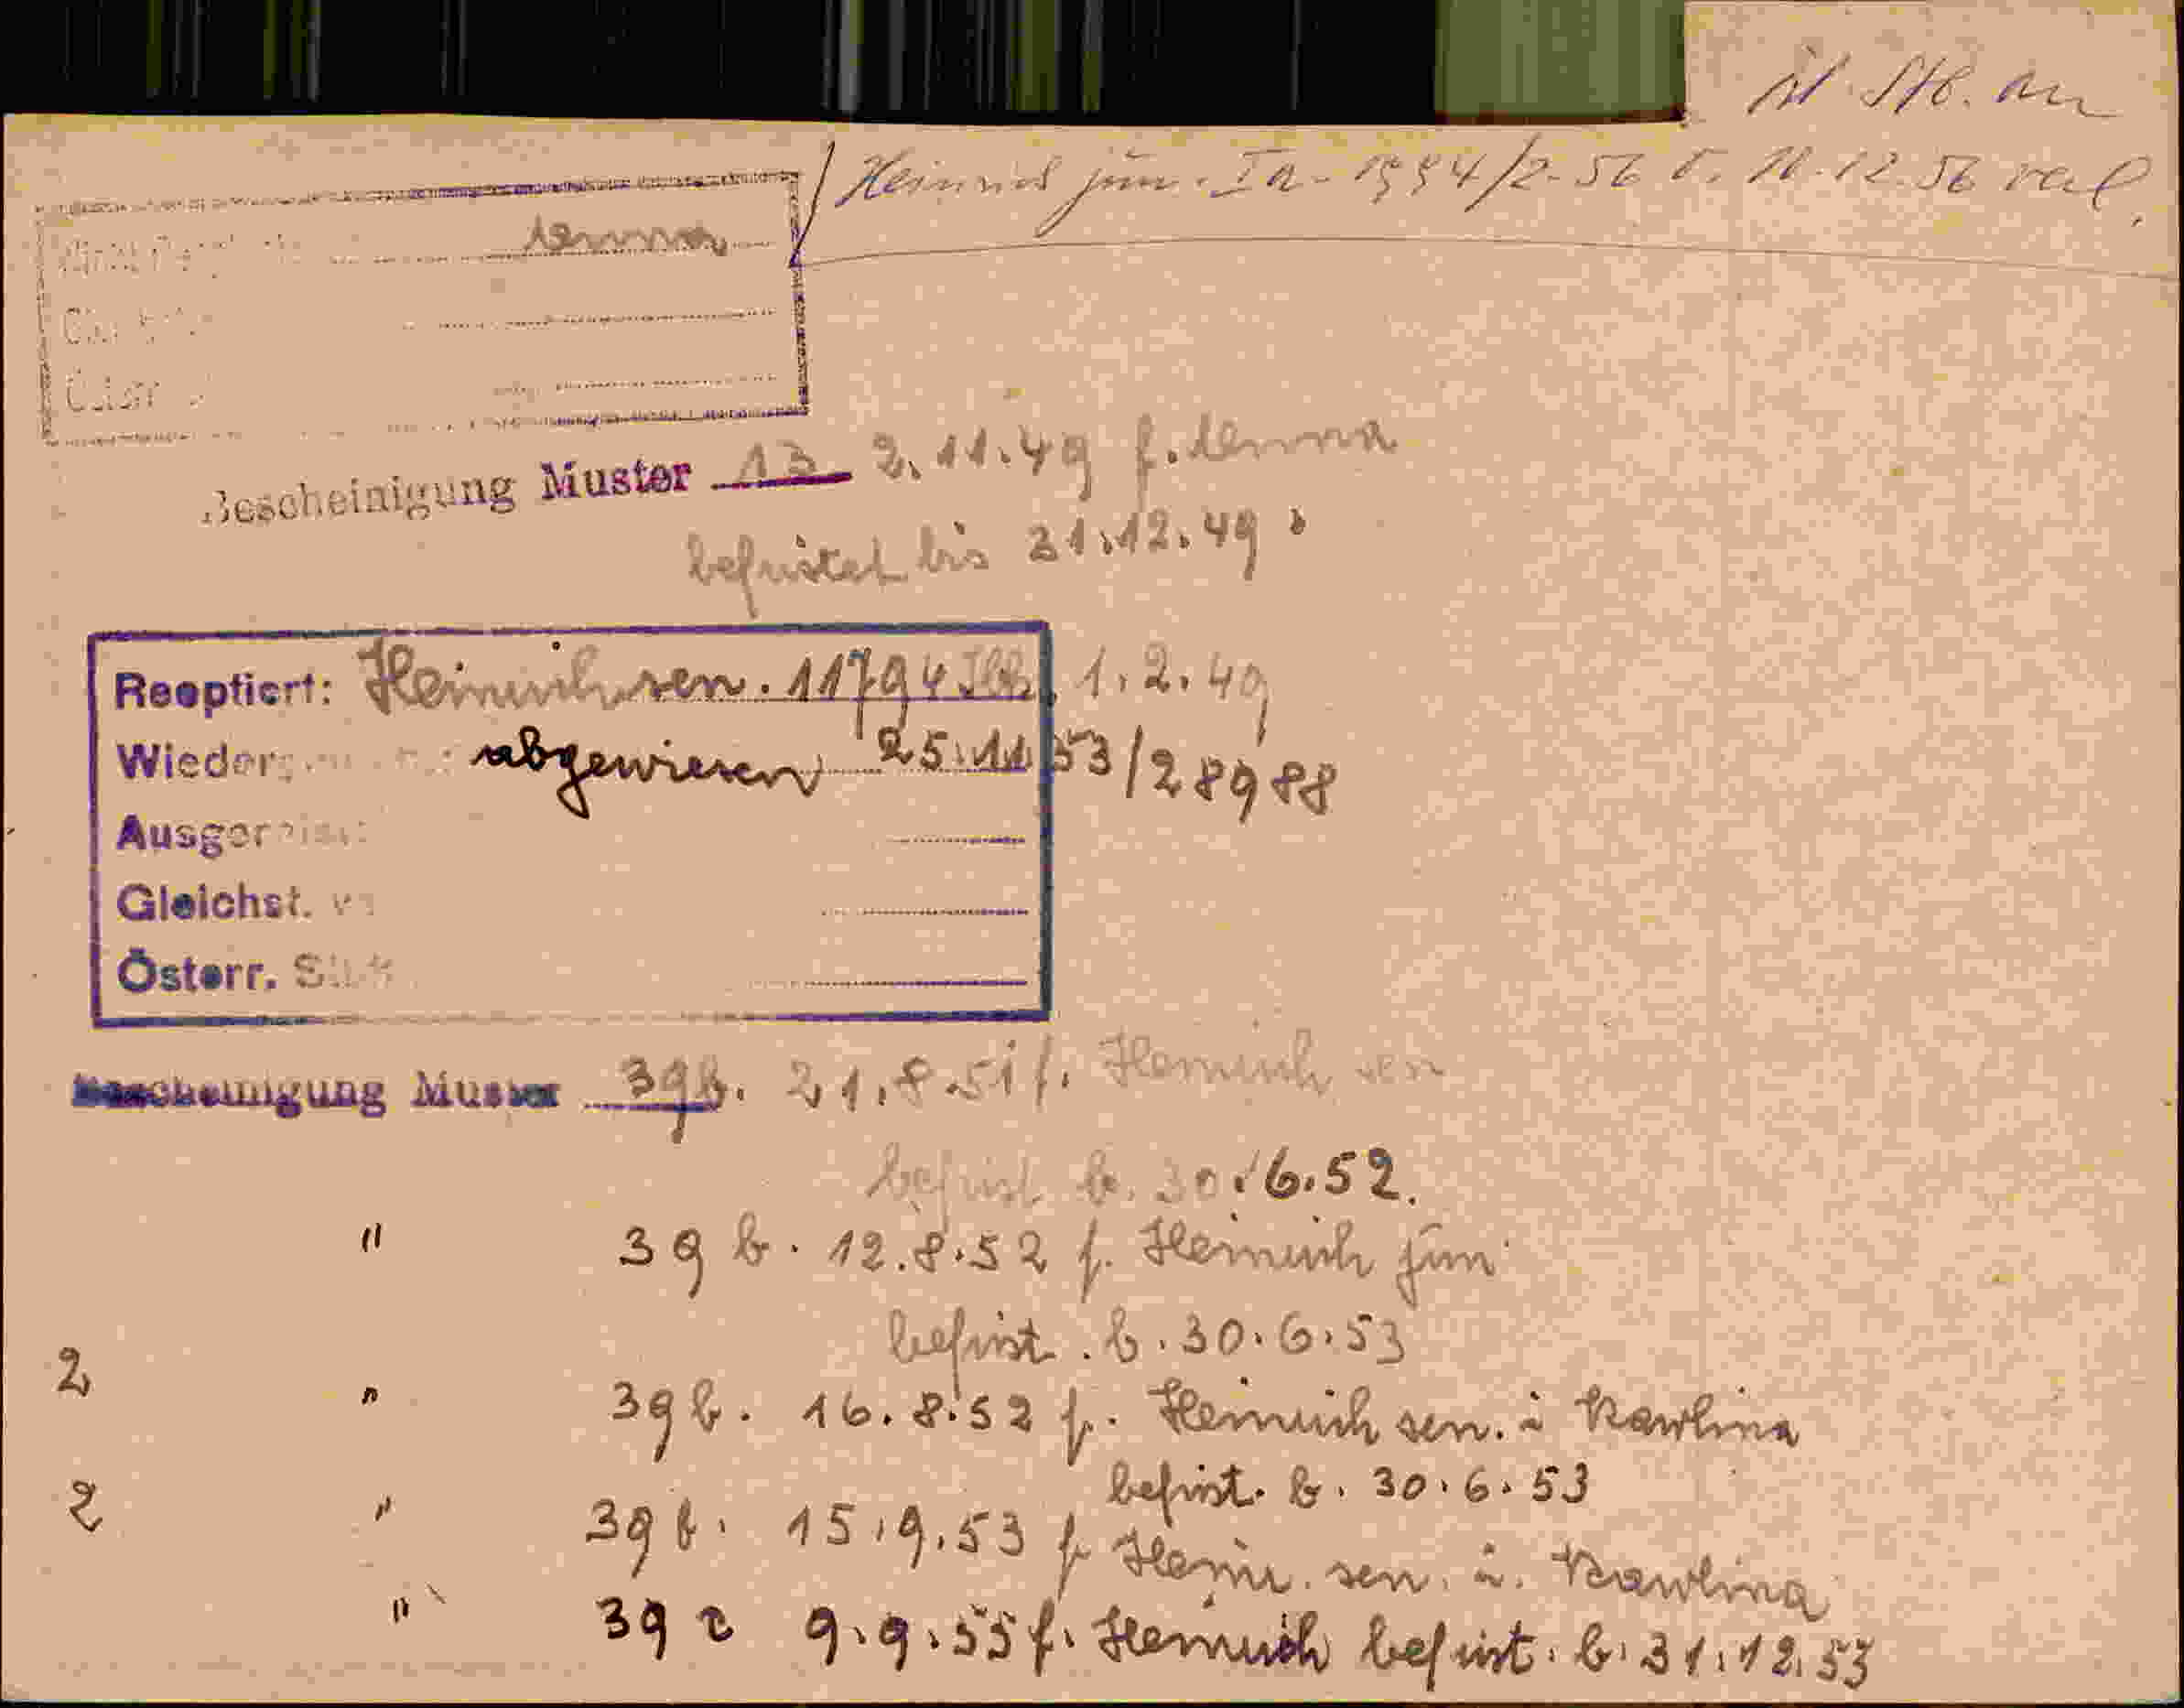 öst. Stb. an
Heinrich jun. Ia-1954/2-56 v. 10.12.56
Bescheinigung Muster 13 2.11.49 f. Anna
befristet bis 31.12.49
Reoptiert: Heinrich sen. 11794 1.2.49
abgewiesen 25.11.53/28988
Ausgereist:
Gleichst.
Österr.
Bescheinigung Muster 39b. 21.8.51 f. Heinrich sen
befrist b. 30.6.52.
" 39 b. 12.8.52 f. Heinrich jun
befrist. b. 30.6.53
2 " 39b. 16.8.52 f. Heinrich sen. ü Karolina
befrist. b. 30.6.53
2 " 39b. 15.9.53 f Heinr. sen. ü. Karolina
" 39 9.9.55 f. Heinrich befrist. b. 31.12.53